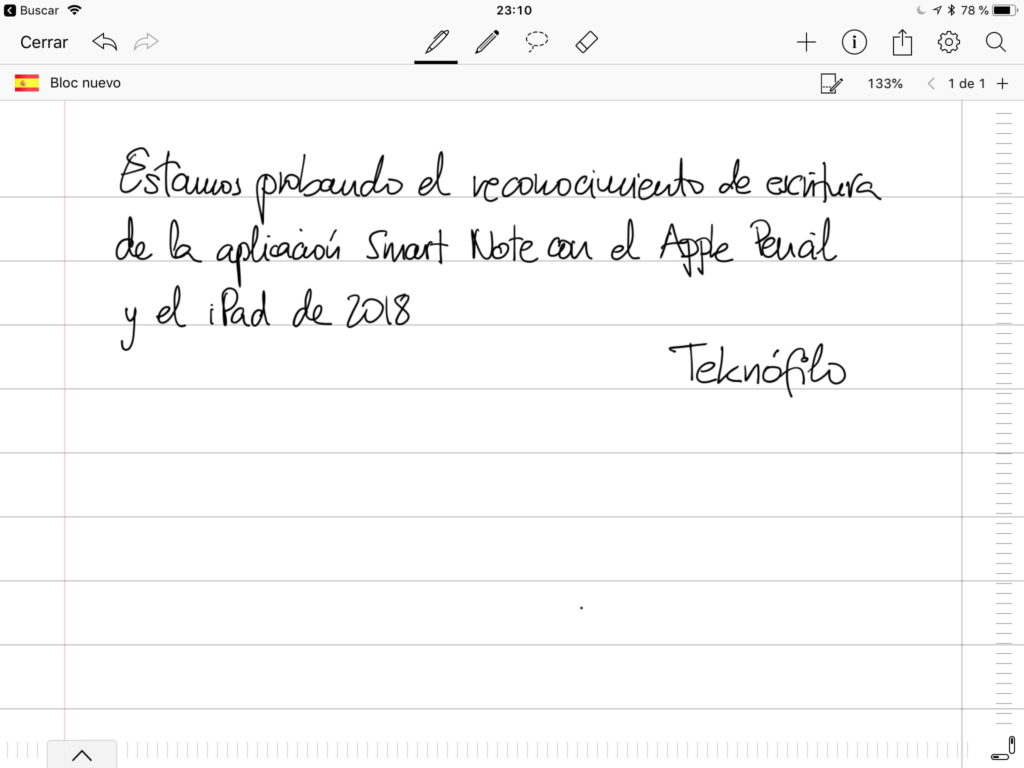 Buscar 23:10 78 %
Cerrar
Bloc nuevo 133% 1 de 1
Estamos probando el reconocimiento de escritura
de la aplicación Smart Note con el Apple Pencil
y el iPad de 2018
Teknófilo